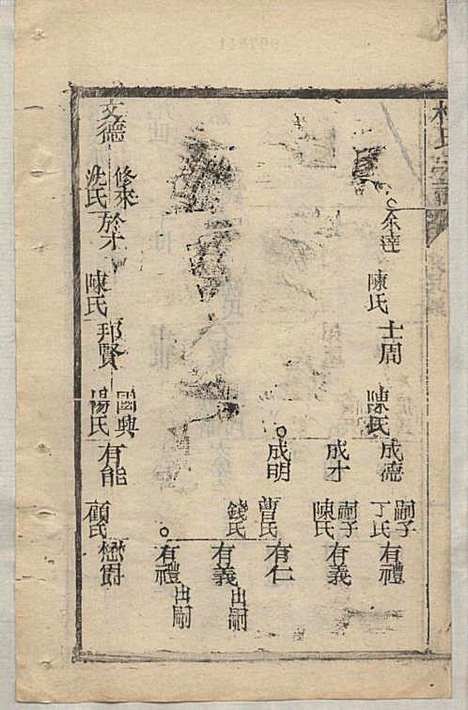 永達
陳氏
士周
陳氏
成德
嗣子
丁氏
有禮
成才
嗣子
陳氏
有義
成明
曹氏
錢氏
有仁
有義
出嗣
有禮
出嗣
文德
修來
沈氏
於才
陳氏
邦賢
國興
楊氏
有能
顧氏